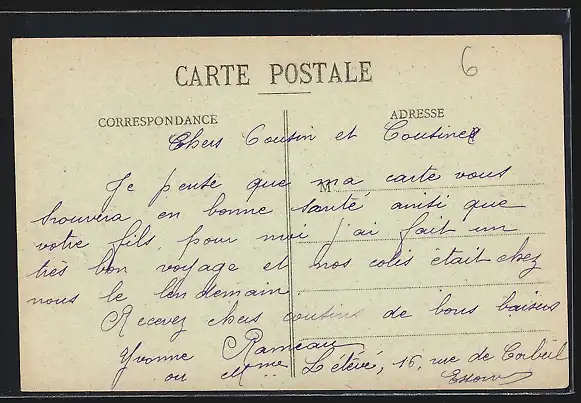 6
CARTE POSTALE
CORRESPONDANCE
ADRESSE
Chers Cousin et Cousine
M
Je pense que ma carte vous
trouvera en bonne santé ainsi que
votre fils, pour moi j'ai fait un
très bon voyage et nos colis était chez
nous le lendemain
Recevez chers cousins de bons baisers
Yvonne Rameau
ou Mme 16, rue de Corbeil